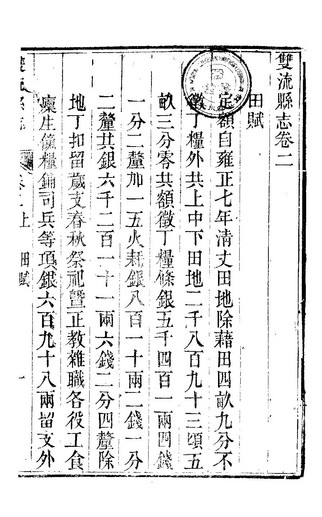 雙流縣志卷二
田賦
定額自雍正七年清丈田地除藉田四畝九分不
徵丁糧外共上中下田地二千八百九十三頃五
畝三分零共額徵丁糧條銀五千四百一兩四錢
一分二釐加一五火耗銀八百一十兩二錢一分
二釐共銀六千二百一十一兩六錢二分四釐除
地丁扣留歲支春秋祭祀曁正教雜職各役工食
廩生餼糧鋪司兵等項銀六百九十八兩留支外
卷二上
田賦
一